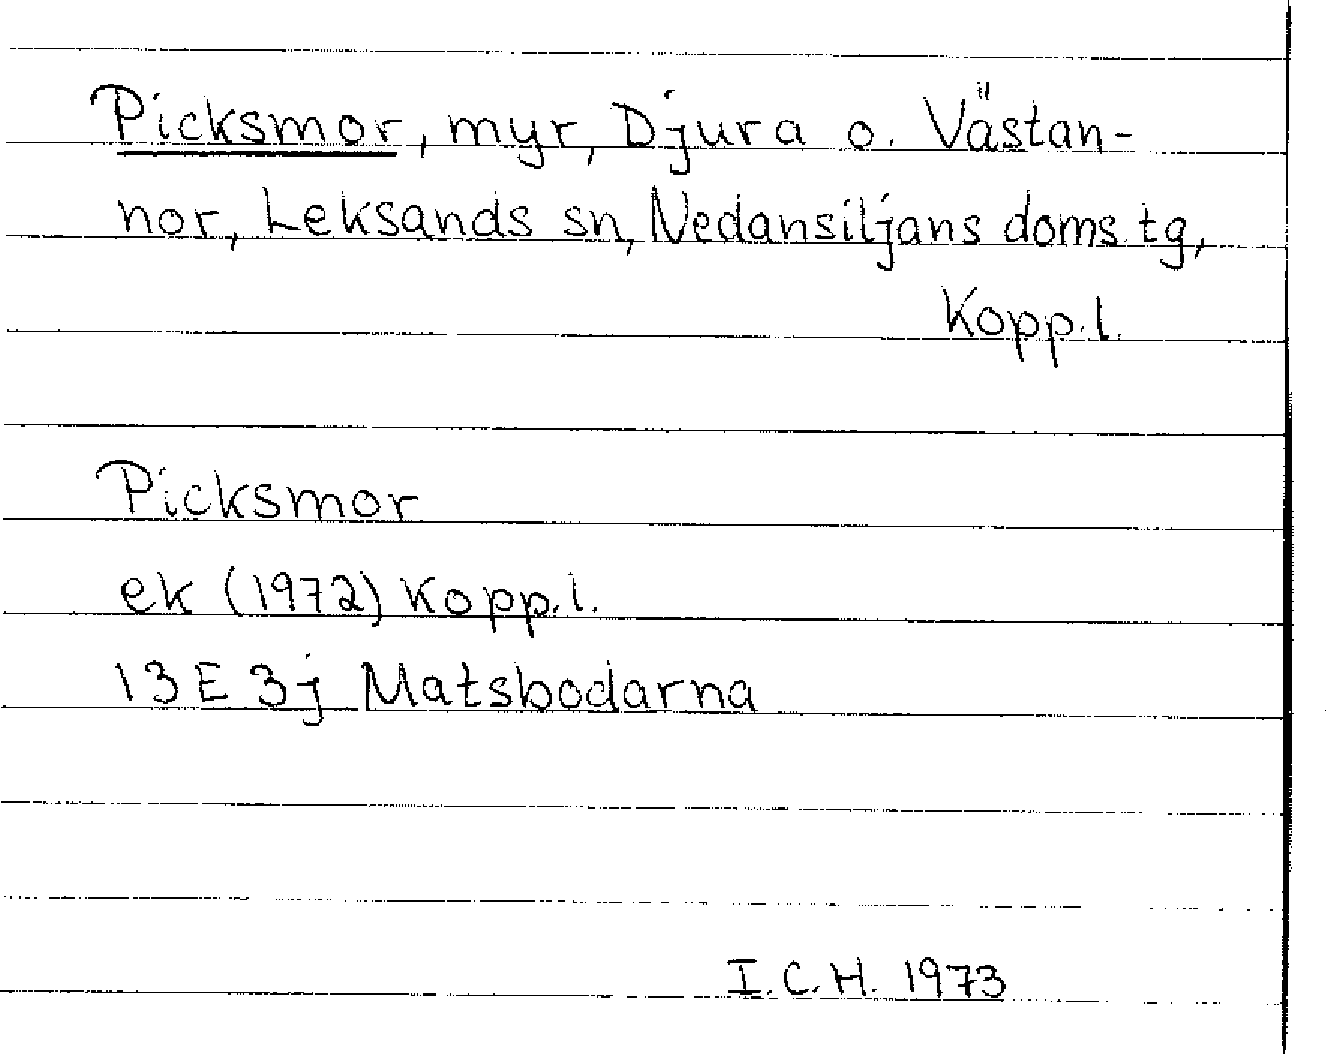 Picksmor, myr, Djura o. Västan-
nor, Leksands sn, Nedansiljans doms. tg,
Kopp. l.
Picksmor
ek (1972) Kopp. l.
13E 3j Matsbodarna
I.C.H. 1973